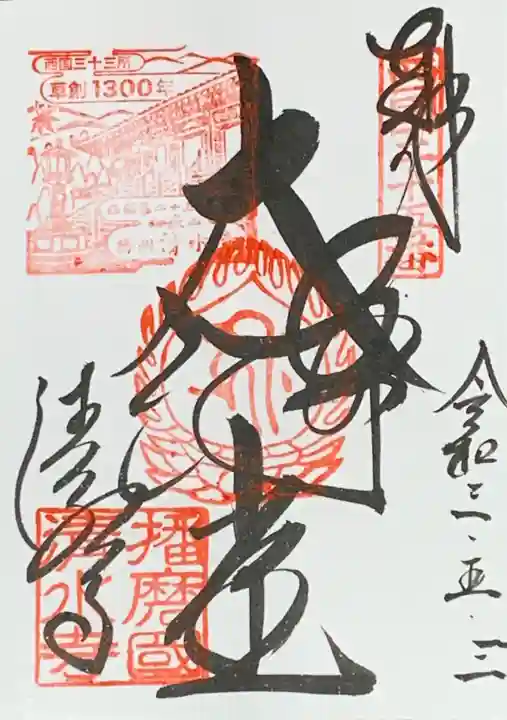 奉拝
西国二十五番
令和三・五・三
大講堂
西国三十三所
草創1300年
清水寺
播磨國
清水寺